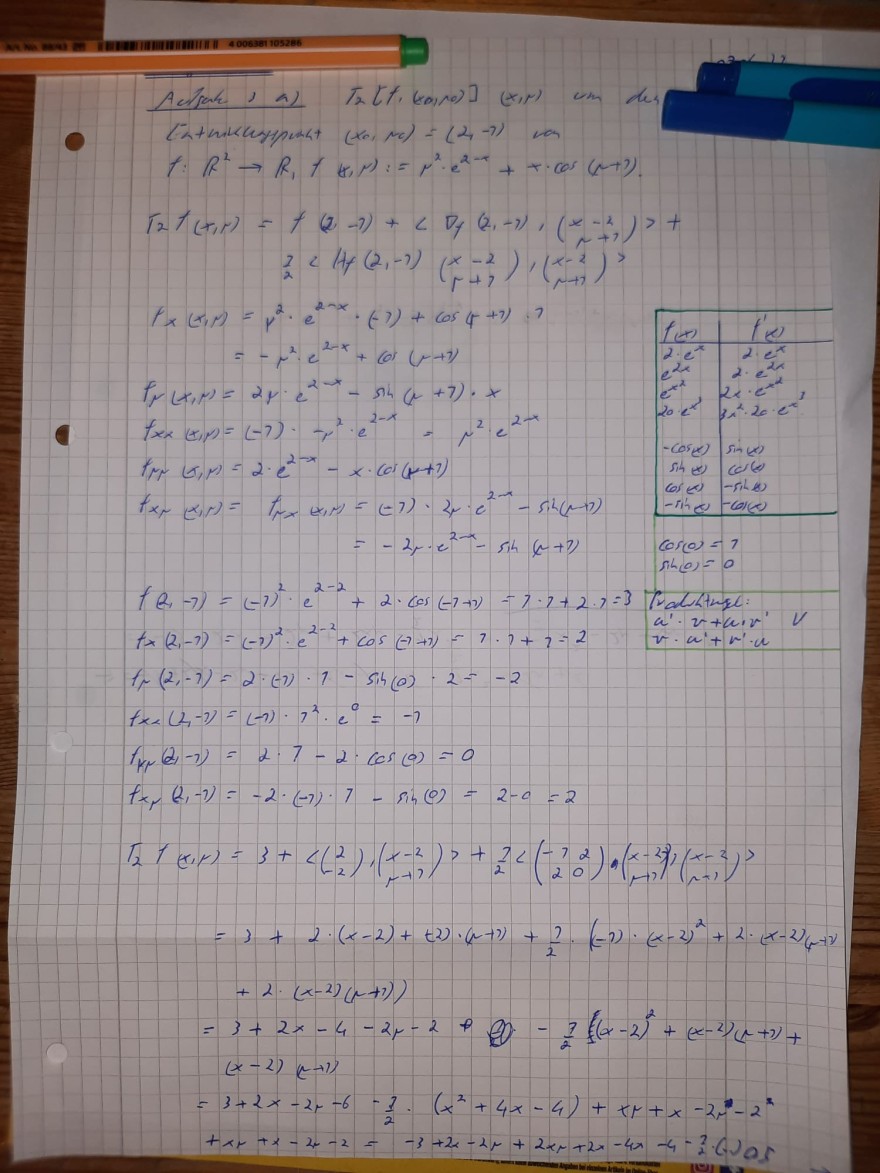 4 006381 105286
Aufgabe 1 a) T₂ [f, (x₀,y₀)] (x,y) um den
Entwicklungspunkt (x₀, y₀) = (2,-1) von
f: ℝ² → ℝ, f (x,y) := y²·e²⁻ˣ + x·cos (y+1).
T₂ f (x,y) = f (2,-1) + < ∇f (2,-1), (x-2 y+1) > +
1/2 < Hf (2,-1) (x-2 y+1), (x-2 y+1) >
fx (x,y) = y² · e²⁻ˣ · (-1) + cos (y+1) · 1
= - y² · e²⁻ˣ + cos (y+1)
fy (x,y) = 2y · e²⁻ˣ - sin (y+1) · x
fxx (x,y) = (-1) · -y² · e²⁻ˣ = y² e²⁻ˣ
fyy (x,y) = 2·e²⁻ˣ - x·cos(y+1)
fxy (x,y) = fyx (x,y) = (-1) · 2y · e²⁻ˣ - sin(y+1)
= - 2y·e²⁻ˣ - sin (y+1)
f(x) f'(x)
2·eˣ 2·eˣ
e²ˣ 2·e²ˣ
e^x² 2x·e^x²
20·e^x³ 3x²·20·e^x³
-cos(x) sin(x)
sin(x) cos(x)
cos(x) -sin(x)
-sin(x) -cos(x)
cos(0) = 1
sin(0) = 0
Produktregel:
u'·v + u·v' V
v·u' + v'·u
f(2,-1) = (-1)² · e²⁻² + 2·cos(-1+1) = 1·1+2·1=3
fx (2,-1) = (-1)² · e²⁻² + cos (-1+1) = 1·1+1=2
fy (2,-1) = 2·(-1)·1 - sin(0) · 2 = -2
fxx (2,-1) = (-1) · 1² · e⁰ = -1
fyy (2,-1) = 2·1 - 2·cos(0) = 0
fxy (2,-1) = -2·(-1)·1 - sin(0) = 2-0 = 2
T₂ f (x,y) = 3 + <(2 -2), (x-2 y+1)> + 1/2 <(-1 2 2 0)·(x-2 y+1), (x-2 y+1)>
= 3 + 2·(x-2) + (-2)·(y+1) + 1/2·(-1)·(x-2)² + 2·(x-2)(y+1)
+ 2·(x-2)(y+1))
= 3 + 2x - 4 - 2y - 2 + - 1/2 ((x-2)² + (x-2)(y+1) +
(x-2) (y+1)
= 3+2x-2y-6 - 1/2 · (x²+4x-4) + xy+x-2y-2
+xy+x-2y-2 = -3+2x-2y+2xy+2x-4x-4-